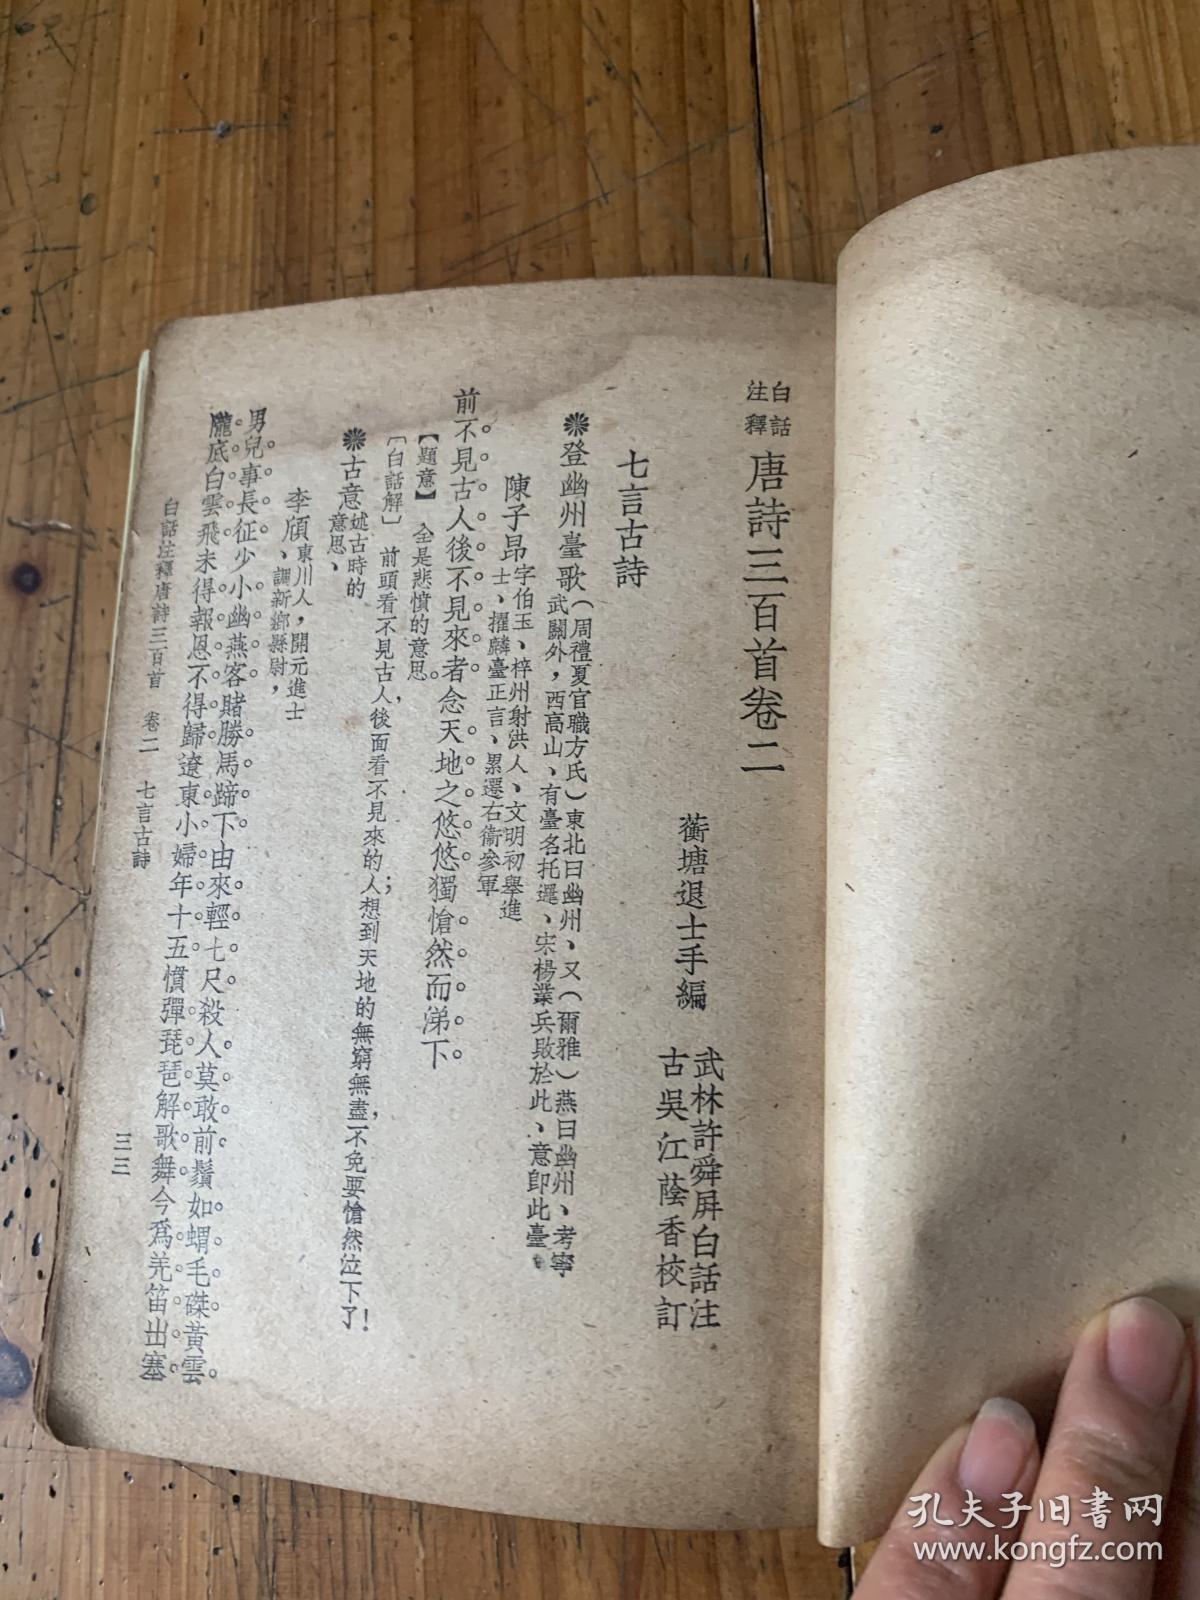 白話
注釋
唐詩三百首卷二
蘅塘退士手編
武林許舜屏白話注
古吳江蔭香校訂
七言古詩
❋登幽州臺歌(周禮夏官職方氏)東北曰幽州、又(爾雅)燕曰幽州、考寧
武關外，西高山、有臺名托邏、宋楊業兵敗於此、意卽此臺、
陳子昂字伯玉、梓州射洪人、文明初舉進
士、擢麟臺正言、累遷右衞參軍
前不見古人後不見來者念天地之悠悠獨愴然而涕下。
【題意】 全是悲憤的意思。
〔白話解〕 前頭看不見古人，後面看不見來的人；想到天地的無窮無盡，不免要愴然泣下了！
❋古意述古時的
意思、
李頎東川人，開元進士
、調新鄉縣尉，
男兒事長征少小幽燕客賭勝馬蹄下由來輕七尺殺人莫敢前鬚如蝟毛磔黃雲
隴底白雲飛未得報恩不得歸遼東小婦年十五慣彈琵琶解歌舞今爲羌笛出塞
白話注釋唐詩三百首 卷二 七言古詩
三三
孔夫子旧书网
www.kongfz.com